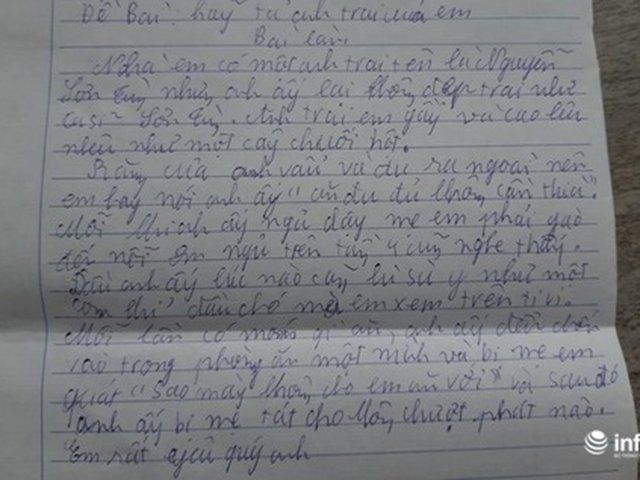 Đề Bài: hãy tả anh trai của em
Bài làm
Nhà em có một anh trai tên là Nguyễn
Sơn Tùng nhưng anh ấy lại không đẹp trai như
ca sĩ Sơn Tùng. Anh trai em gầy và cao lêu
nêu như một cây chuối hột.
Răng của anh vẩu và đu ra ngoài nên
em hay nói anh ấy "ăn đu đủ không cần thìa".
Mỗi khi anh ấy ngủ dậy mẹ em phải gào
đến nỗi em ngủ trên tầng 4 cũng nghe thấy.
Đầu anh ấy lúc nào cũng bù sù y như một
con thú đầu chó mà em xem trên ti vi.
Mỗi lần có món gì ăn, anh ấy đều
vào trong phòng ăn một mình và bị mẹ em
quát "Sao mày không cho em ăn với" và sau đó
anh ấy bị mẹ tát cho không chượt phát nào.
Em rất yêu quý anh
inf